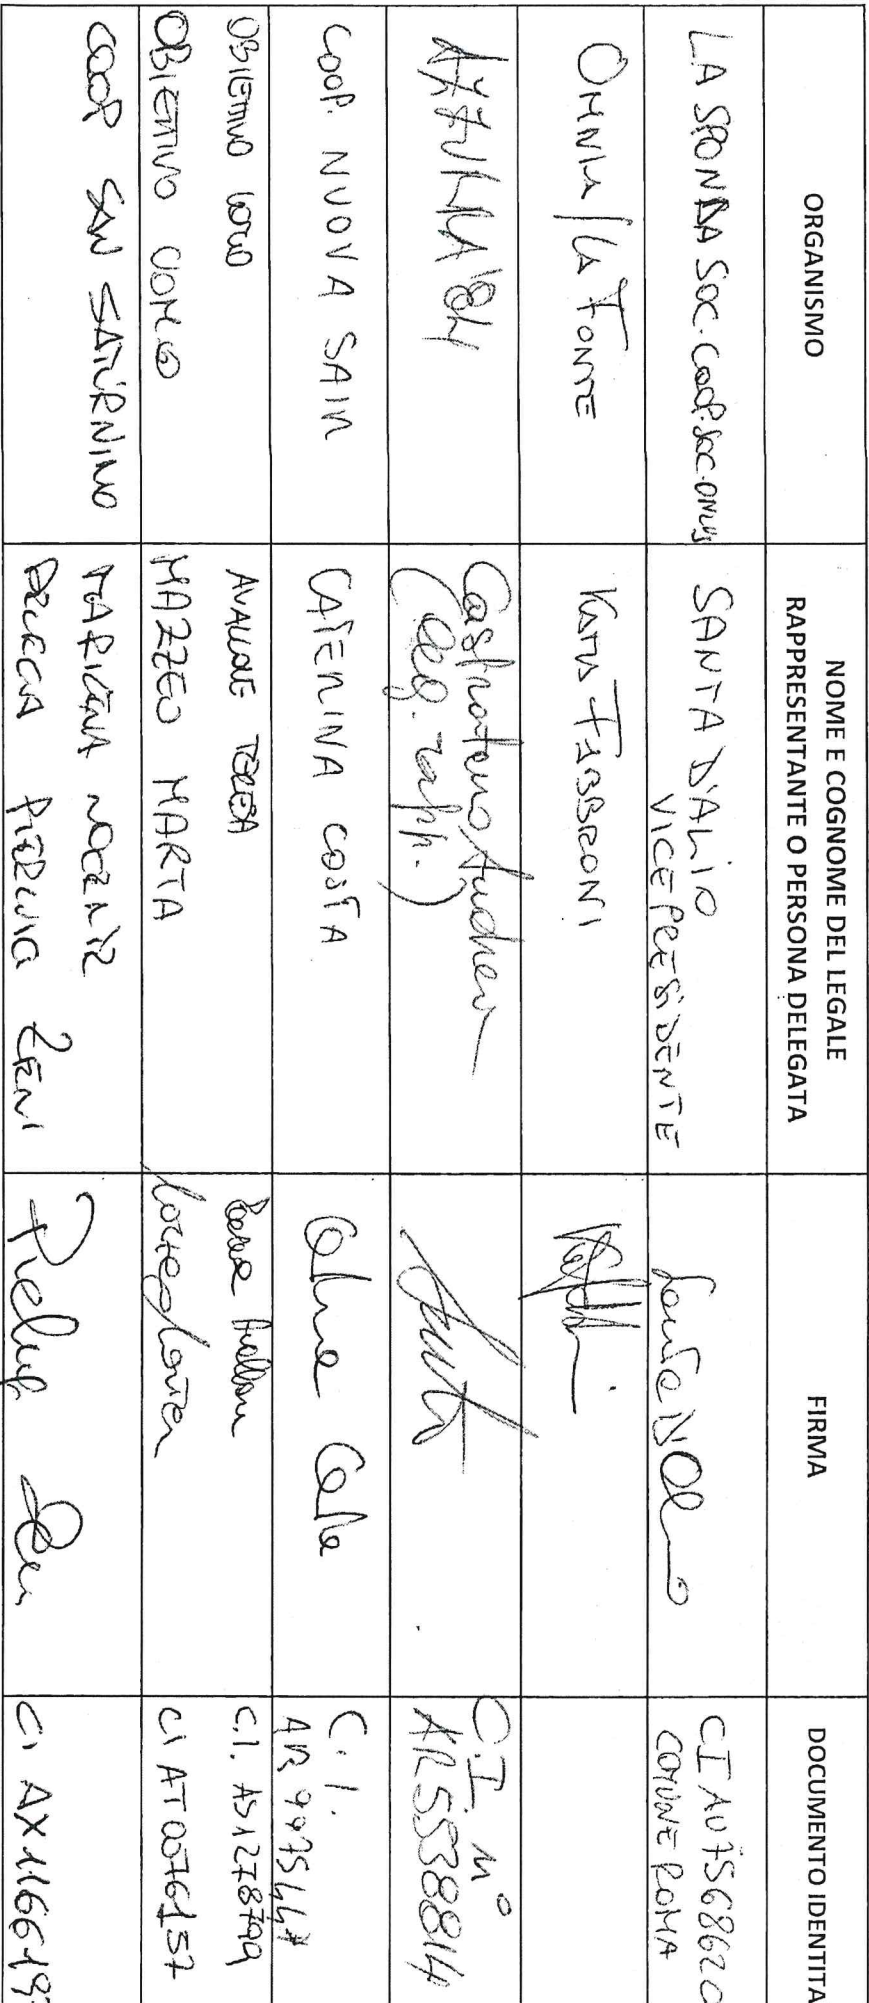 ORGANISMO
NOME E COGNOME DEL LEGALE
RAPPRESENTANTE O PERSONA DELEGATA
FIRMA
DOCUMENTO IDENTITA
LA SPONDA SOC. COOP. SOC. ONLUS
SANTA D'ALIO
VICEPRESIDENTE
CI AU7568620
COMUNE ROMA
OMNIA/LA FONTE
KATIA FABBRONI
AZZURRA'84
Castrataro Andrea
(leg. rapp.)
C.I. n°
AR5538814
COOP. NUOVA SAIR
CATERINA COSTA
Costa
C.I.
OBIETTIVO UOMO
AVALLONE TERESA
Teresa Avallone
C.I. AS1278799
OBIETTIVO UOMO
MAZZEO MARTA
CI AT0076157
COOP SAN SATURNINO
PIERLUCA ZENI
CI AX116619